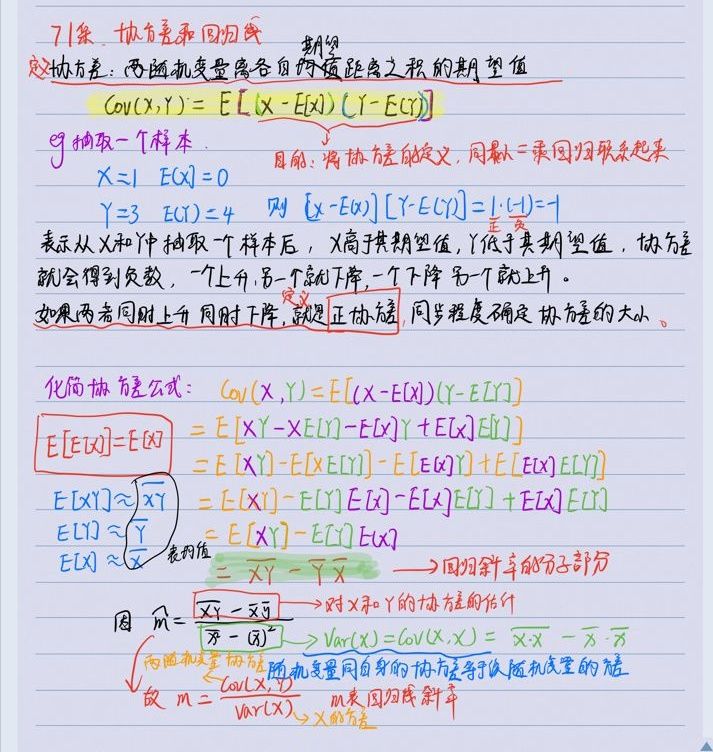 71集. 协方差和回归线
期望
定义 协方差: 两随机变量离各自均值距离之积的期望值
Cov(X,Y) = E[(X-E[X])(Y-E(Y)]
eg 抽取一个样本.
目的: 将协方差的定义, 同最小二乘回归联系起来
X=1 E(X)=0
Y=3 E(Y)=4 则 [X-E(X)][Y-E(Y)]=1·(-1)=-1
正 负
表示从X和Y中抽取一个样本后, X高于其期望值, Y低于其期望值, 协方差
就会得到负数, 一个上升, 另一个就下降, 一个下降 另一个就上升。
定义
如果两者同时上升 同时下降, 就是正协方差, 同步程度确定协方差的大小。
化简协方差公式: Cov(X,Y)=E[(X-E[X])(Y-E[Y])]
E[E[X]]=E[X] = E[XY-XE[Y]-E[X]Y+E[X]E[Y]]
= E[XY]-E[XE[Y]]-E[E[X]Y]+E[E[X]E[Y]]
E[XY]≈X̅Y̅ = E[XY]-E[Y]E[X]-E[X]E[Y]+E[X]E[Y]
E[Y]≈Y̅ = E[XY]-E[Y]E[X]
E[X]≈X̅ 表均值
= X̅Y̅ - Y̅ X̅ → 回归斜率的分子部分
因 m̂ = (X̅Y̅ - x̅y̅) / (x̅² - (x̅)²) → 对X和Y的协方差的估计
→ Var(X)=Cov(X,X) = X̅·X̅ - X̅·X̅
两随机变量协方差 随机变量同自身的协方差等于该随机变量的方差
故 m = Cov(X,Y) / Var(X) m表回归线斜率
→ X的方差